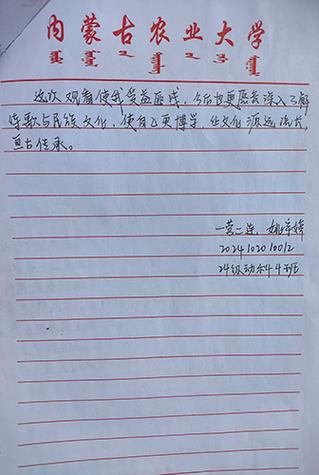 内蒙古农业大学
这次观看使我受益匪浅，今后也更愿意深入了解
诗歌与民族文化，使自己更博学，让文化源远流长，
亘古传承。
一营二连
2024102010012
24级动科44班